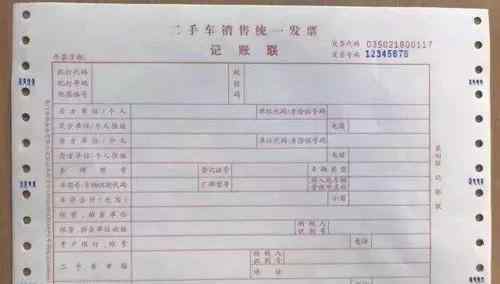 二手车销售统一发票
记账联
发票代码 035021800117
发票号码 12345678
开票日期:
机打代码
机打号码
机器编号
税控码
买方单位/个人 单位代码/身份证号码
买方单位/个人住址 电话
卖方单位/个人 单位代码/身份证号码
卖方单位/个人住址 电话
车牌照号 登记证号 车辆类型
车架号/车辆识别代码 厂牌型号 转入地车辆管理所名称
车价合计(大写) 小写
经营、拍卖单位
经营、拍卖单位地址 纳税人识别号
开户银行、账号 电话
二手车市场 纳税人识别号
地址
记账联